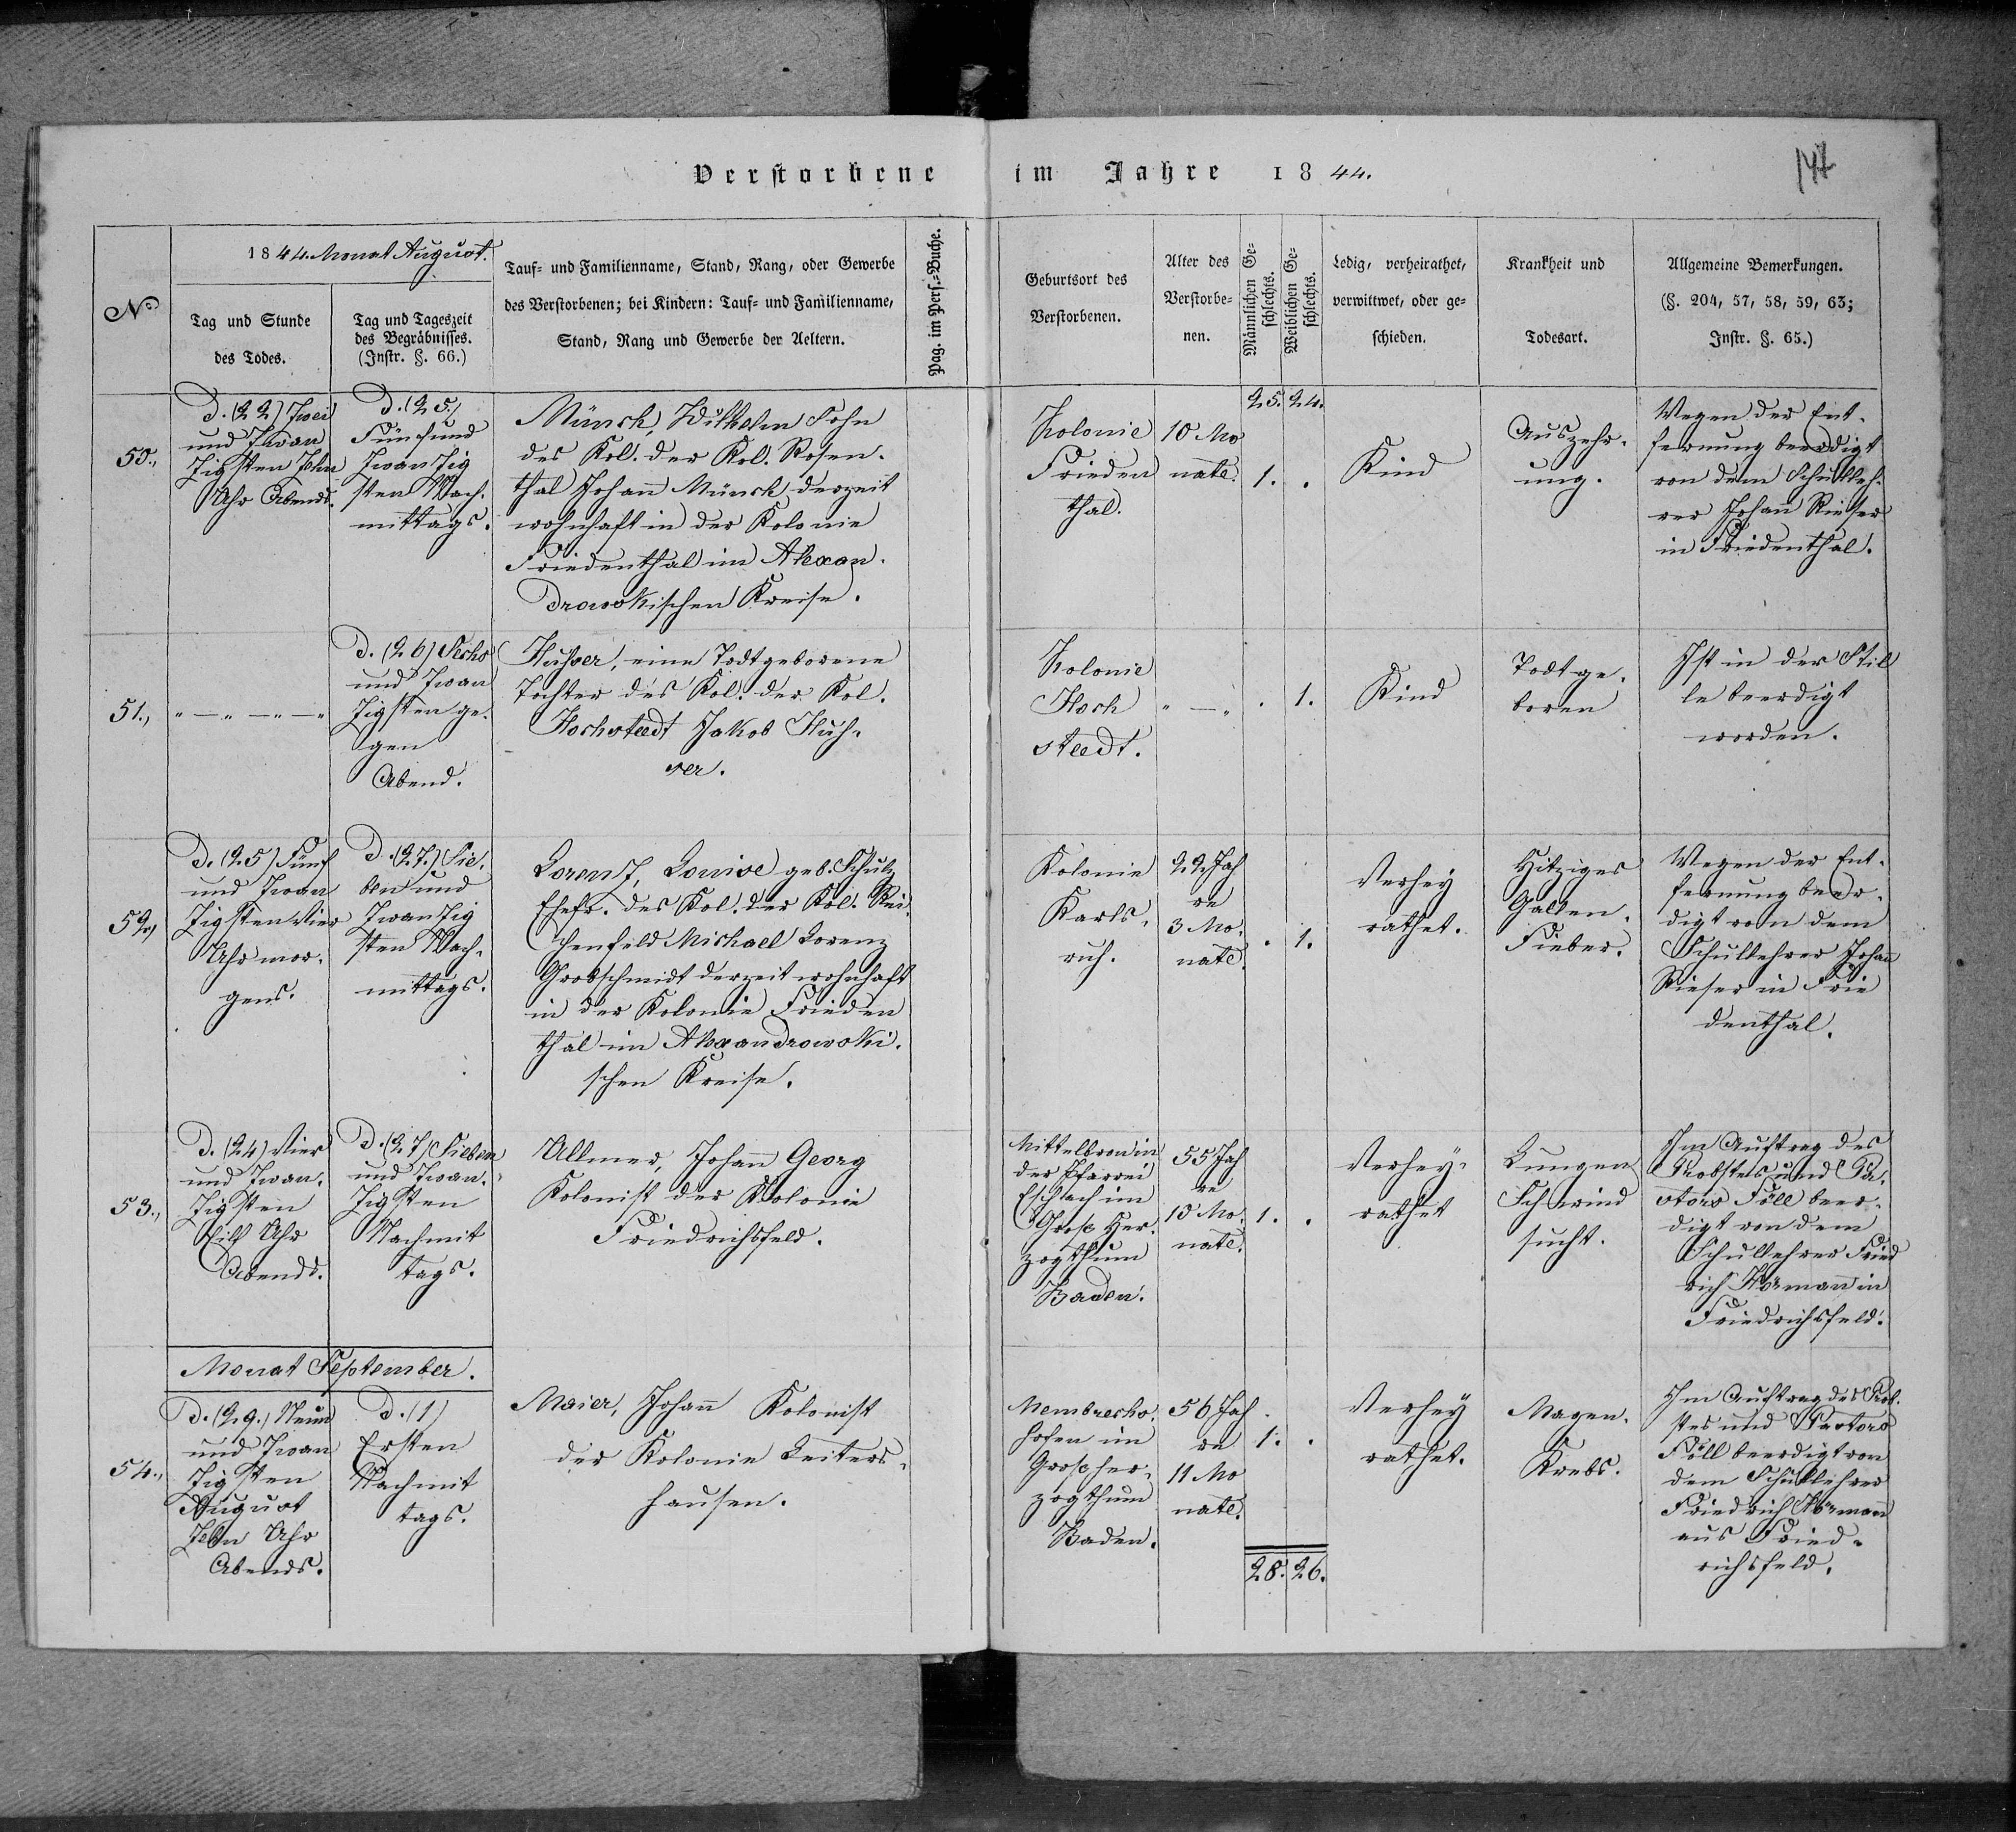 Verstorbene im Jahre 1844.
147
No
1844. Monat August.
Tag und Stunde
des Todes.
Tag und Tageszeit
des Begräbnisses.
(Instr. §. 66.)
Tauf= und Familienname, Stand, Rang, oder Gewerbe
des Verstorbenen; bei Kindern: Tauf= und Familienname,
Stand, Rang und Gewerbe der Aeltern.
Pag. im Pers.=Buche.
Geburtsort des
Verstorbenen.
Alter des
Verstorbe=
nen.
Männlichen Ge=
schlechts.
Weiblichen Ge=
schlechts.
Ledig, verheirathet,
verwittwet, oder ge=
schieden.
Krankheit und
Todesart.
Allgemeine Bemerkungen.
(§. 204, 57, 58, 59, 63;
Instr. §. 65.)
25. 24.
50.,
D. (22) Zwei
und Zwan
zigsten Zehn
Uhr Abends.
D. (25.)
Fünfund
Zwanzig
sten Nach-
mittags.
Münch, Wilhelm Sohn
des Kol. der Kol. Rosen-
thal Johann Münch derzeit
wohnhaft in der Kolonie
Friedenthal im Alexan-
drowskischen Kreise.
Kolonie
Frieden
thal.
10 Mo
nate.
1. .
Kind
Auszehr-
ung.
Wegen der Ent-
fernung beerdigt
von dem Schulleh-
rer Johan Rieser
in Friedenthal.
51.,
" — " — " — "
D. (26) Sechs
und Zwan
zigsten ge-
gen
Abend.
Huhser, eine Todtgeborene
Tochter des Kol. der Kol.
Hochstaedt Jakob Huh-
ser.
Kolonie
Hoch
staedt.
" — "
. 1.
Kind
Todtge-
boren
Ist in der Stil
le beerdigt
worden.
52.,
D. (25) Fünf
und Zwan
zigsten Vier
Uhr mor-
gens.
D. (27.) Sie-
ben und
Zwanzig
sten Nach-
mittags.
Lorenz, Louise geb. Schulz
Ehefr. des Kol. der Kol. Rei-
chenfeld Michael Lorenz
Grobschmidt derzeit wohnhaft
in der Kolonie Frieden
thal im Alexandrowski-
schen Kreise.
Kolonie
Karls-
ruh.
22 Jah
re
3 Mo-
nate.
. 1.
Verhey
rathet.
Hitziges
Gallen-
Fieber.
Wegen der Ent-
fernung beer-
digt von dem
Schullehrer Johan
Rieser in Frie
denthal.
53.,
D. (24) Vier
und Zwan-
zigsten
Eilf Uhr
Abends.
D. (27) Sieben
und Zwan-
zigsten
Nachmit
tags.
Ullmer, Johann Georg
Kolonist der Kolonie
Friedrichsfeld.
Mittelbron in
der Pfarrei
Eschach im
Groß Her-
zogthum
Baden.
55 Jah
re
10 Mo-
nate.
1. .
Verhey-
rathet
Lungen
Schwind
sucht.
Im Auftrag des
Probstes und Pa-
stors Föll beer-
digt von dem
Schullehrer Fried
rich Hörmann in
Friedrichsfeld.
Monat September.
54.,
D. (29.) Neun
und Zwan
zigsten
August
Zehn Uhr
Abends.
D. (1)
Ersten
Nachmit
tags.
Maier, Johann Kolonist
der Kolonie Leiters-
hausen.
Membrechs-
hofen im
Großher-
zogthum
Baden.
56 Jah
re
11 Mo
nate.
1. .
Verhey
rathet.
Magen-
Krebs.
Im Auftrag des Prob-
stes und Pastors
Föll beerdigt von
dem Schullehrer
Friedrich Hörmann
aus Fried-
richsfeld.
28. 26.